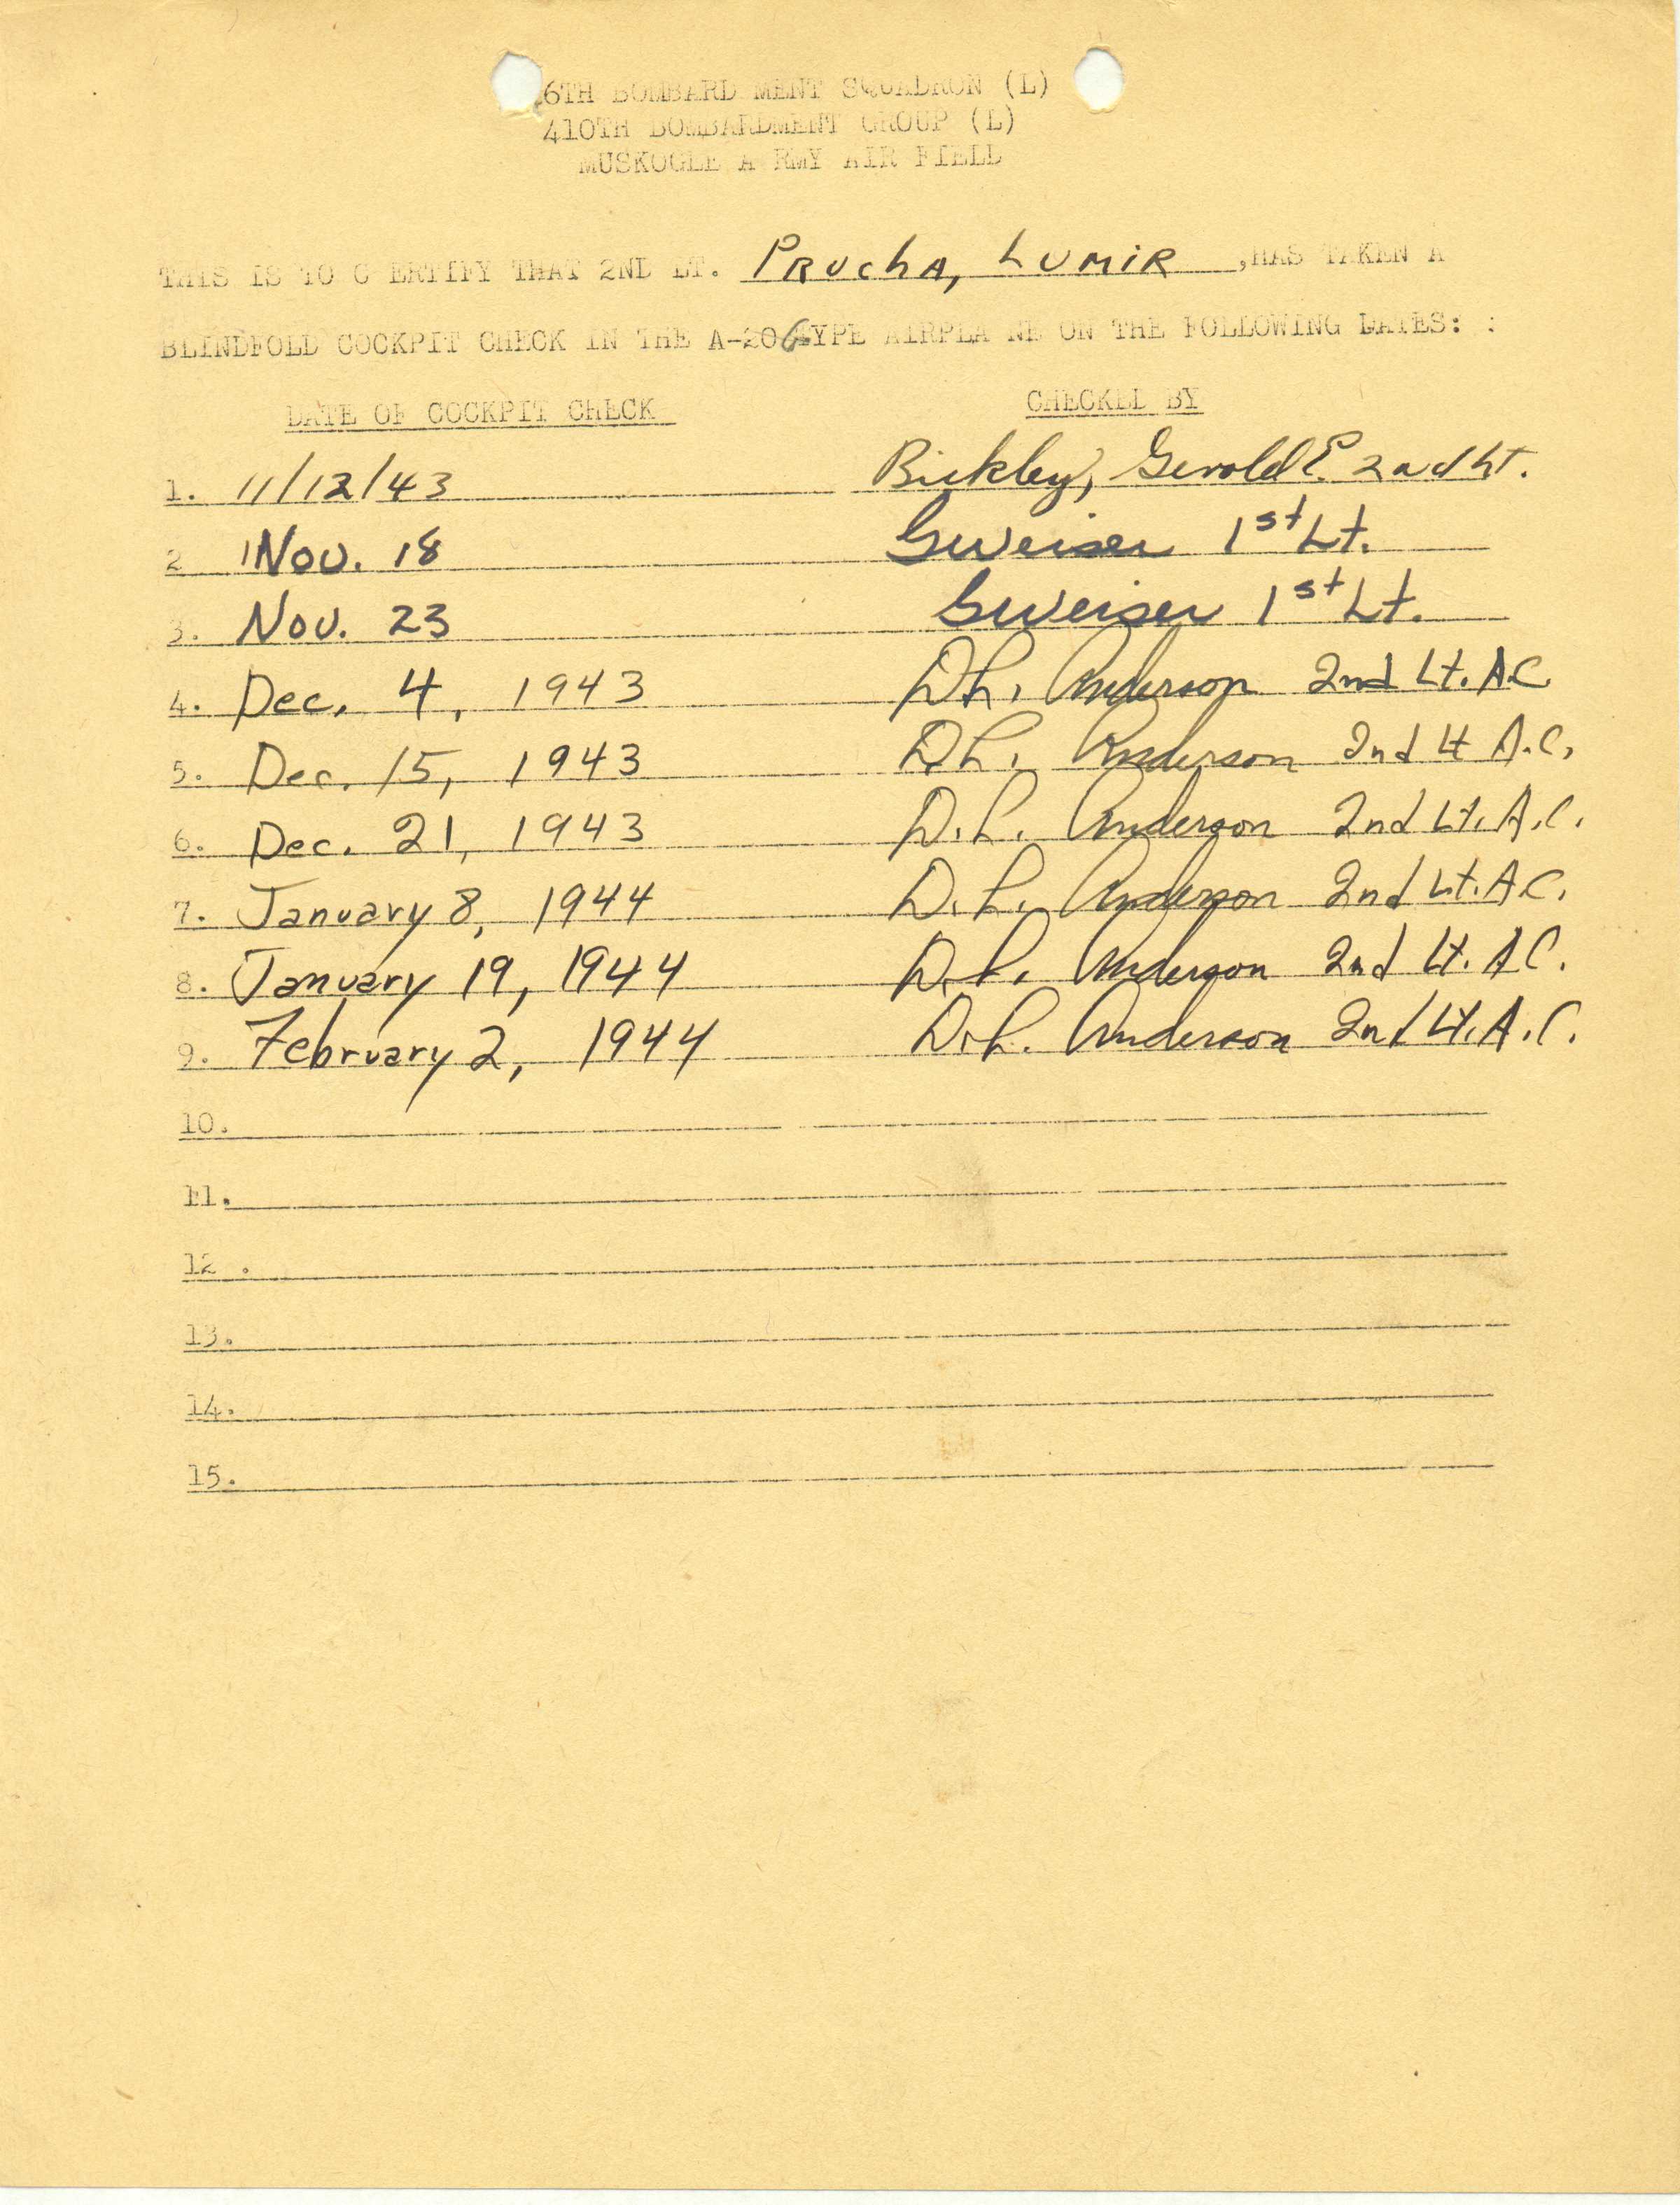 6TH BOMBARD MENT SQUADRON (L)
410TH BOMBARDMENT GROUP (L)
MUSKOGEE A RMY AIR FIELD
THIS IS TO C ERTIFY THAT 2ND LT. PRUCHA, LUMIR ,HAS TAKEN A
BLINDFOLD COCKPIT CHECK IN THE A-20G TYPE AIRPLA NE ON THE FOLLOWING DATES: :
DATE OF COCKPIT CHECK CHECKED BY
1. 11/12/43 Bickley, Gerold E. 2nd Lt.
2 Nov. 18 1st Lt.
3. Nov. 23 1st Lt.
4. Dec. 4, 1943 D.L. Anderson 2nd Lt. A.C.
5. Dec. 15, 1943 D.L. Anderson 2nd Lt A.C.
6. Dec. 21, 1943 D.L. Anderson 2nd Lt. A.C.
7. January 8, 1944 D.L. Anderson 2nd Lt. A.C.
8. January 19, 1944 D.L. Anderson 2nd Lt. A.C.
9. February 2, 1944 D.L. Anderson 2nd Lt. A.C.
10.
11.
12 .
13.
14.
15.